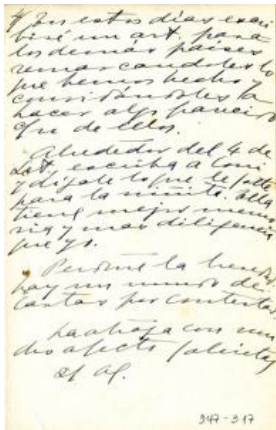 En estos días escri
biré un art. para
los demás países
remarcandoles lo
que hemos hecho y
convidándoles a
hacer algo parecido
c/u de ellos.
Alrededor del 4 de
escriba a Coni
y dígale lo que le falta
para la niñita. Ella
tiene mejor memo
ria y mas diligencia
que yo.
Perdone la
hay un mundo de
cartas por contestar.
La abraza con mu
cho afecto
947-317